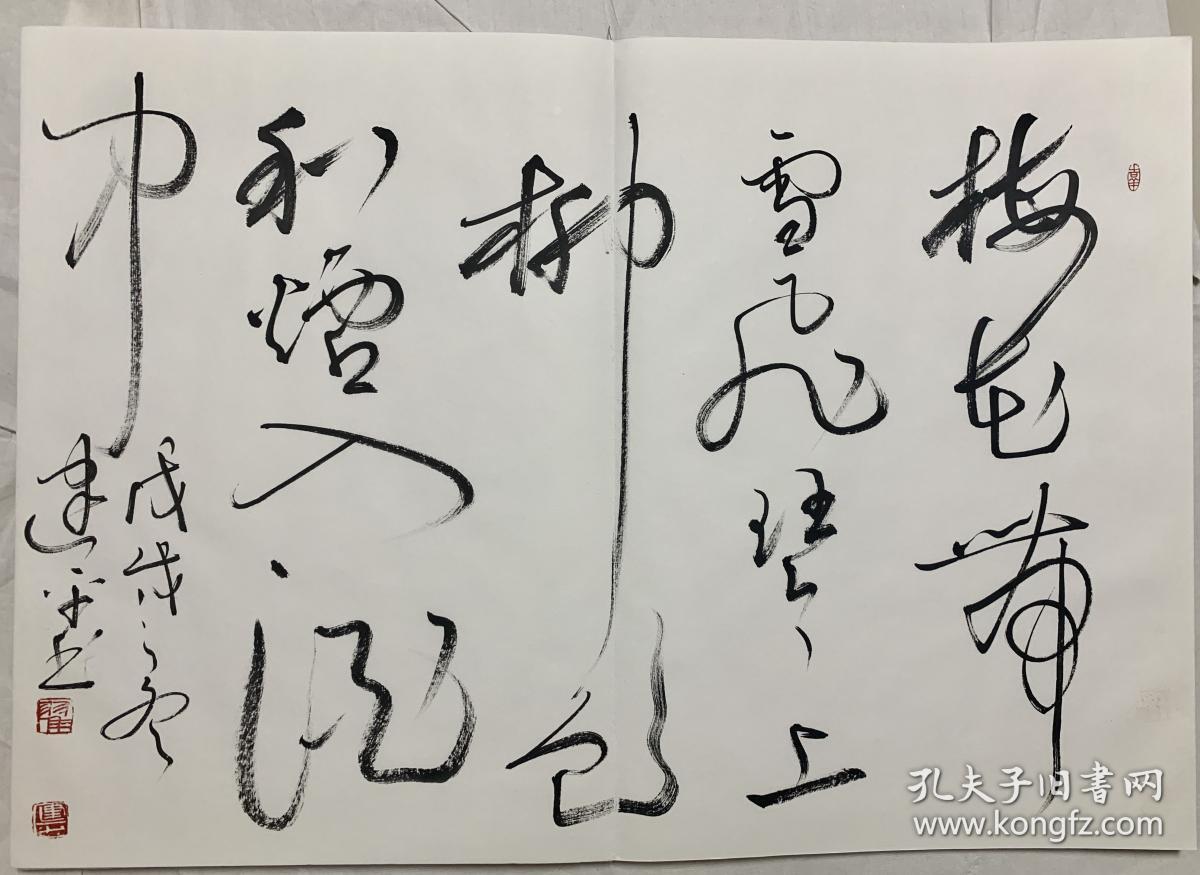 梅花帶
雪飛琴上
柳色
和煙入酒
中
戊戌之冬
建平书
孔夫子旧书网
www.kongfz.com